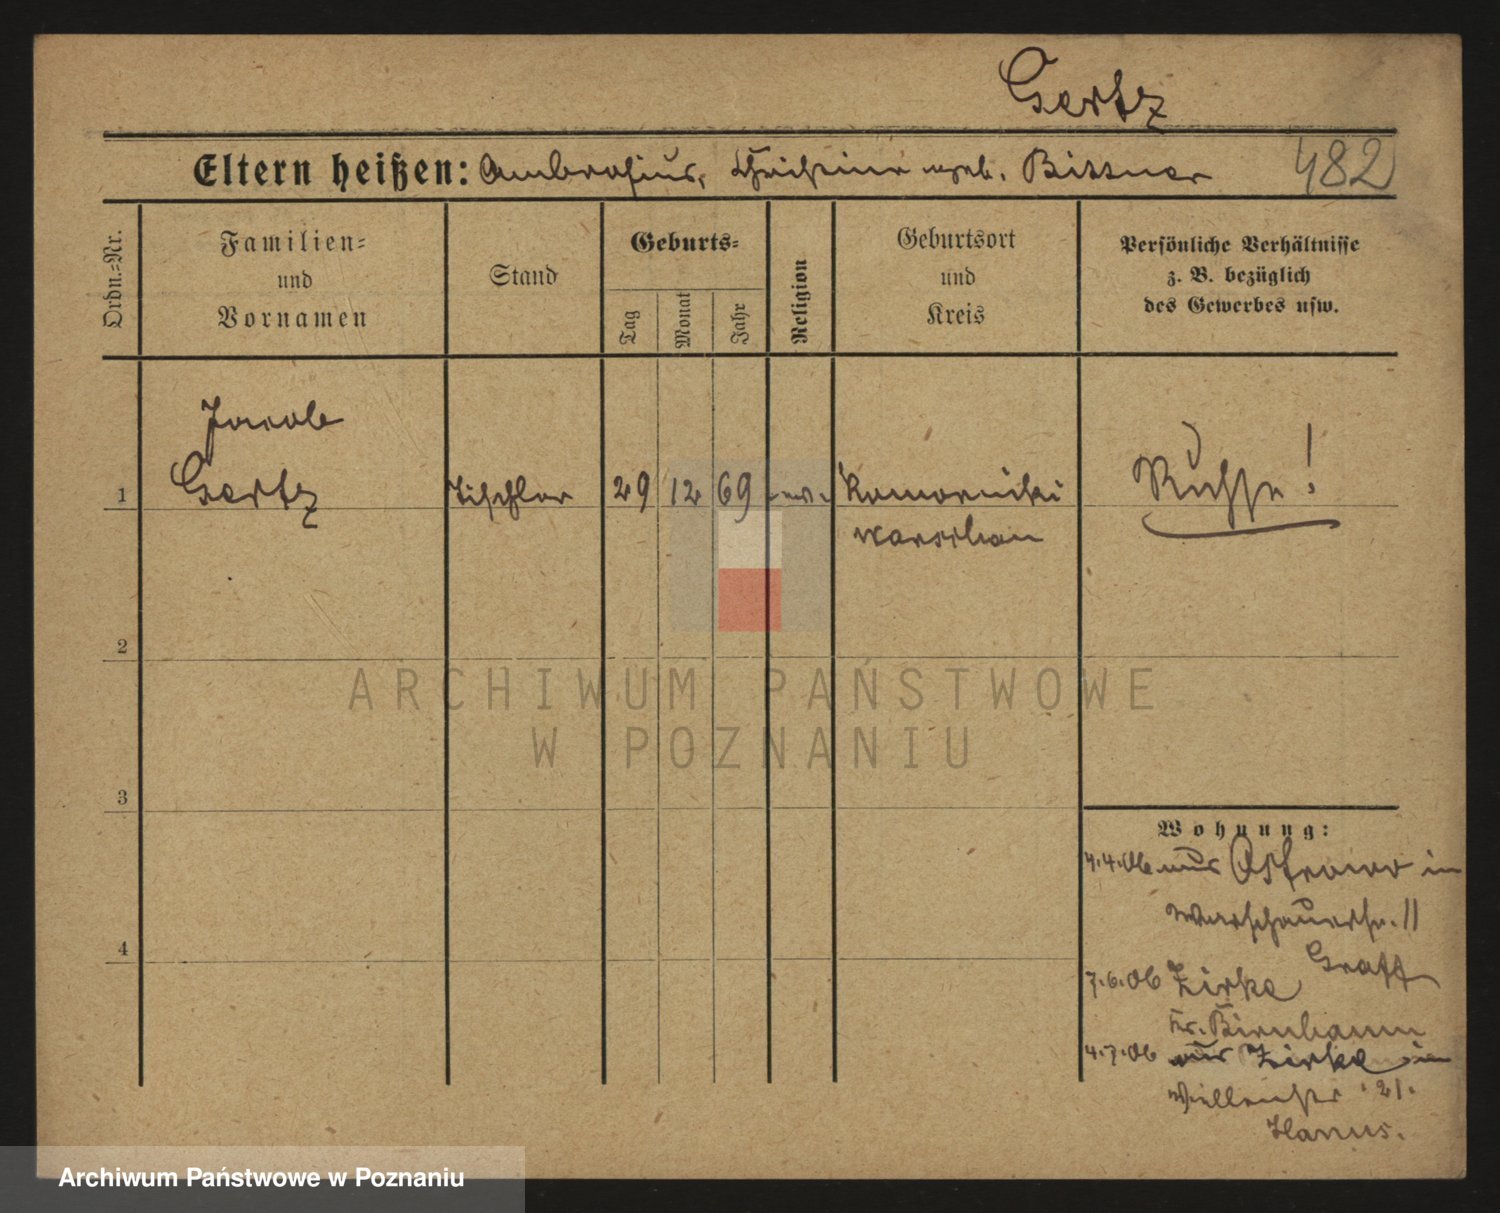 Gertz
Eltern heißen: Ambrosius, Christine geb. Bittner 482
Ordn.=Nr.
Familien=
und
Vornamen
Stand
Geburts=
Tag
Monat
Jahr
Religion
Geburtsort
und
Kreis
Persönliche Verhältnisse
z. B. bezüglich
des Gewerbes usw.
Jacob
1 Gertz Tischler 29 12 69 ev. Komorniki Russe!
Warschau
2
3
4
Wohnung:
4.4.06 aus Ostrowo in
Warschauerstr. 11
Graff
7.6.06 Zirke
Kr. Birnbaum
4.7.06 aus Zirke in
21.
Hanus.
ARCHIWUM PAŃSTWOWE
W POZNANIU
Archiwum Państwowe w Poznaniu